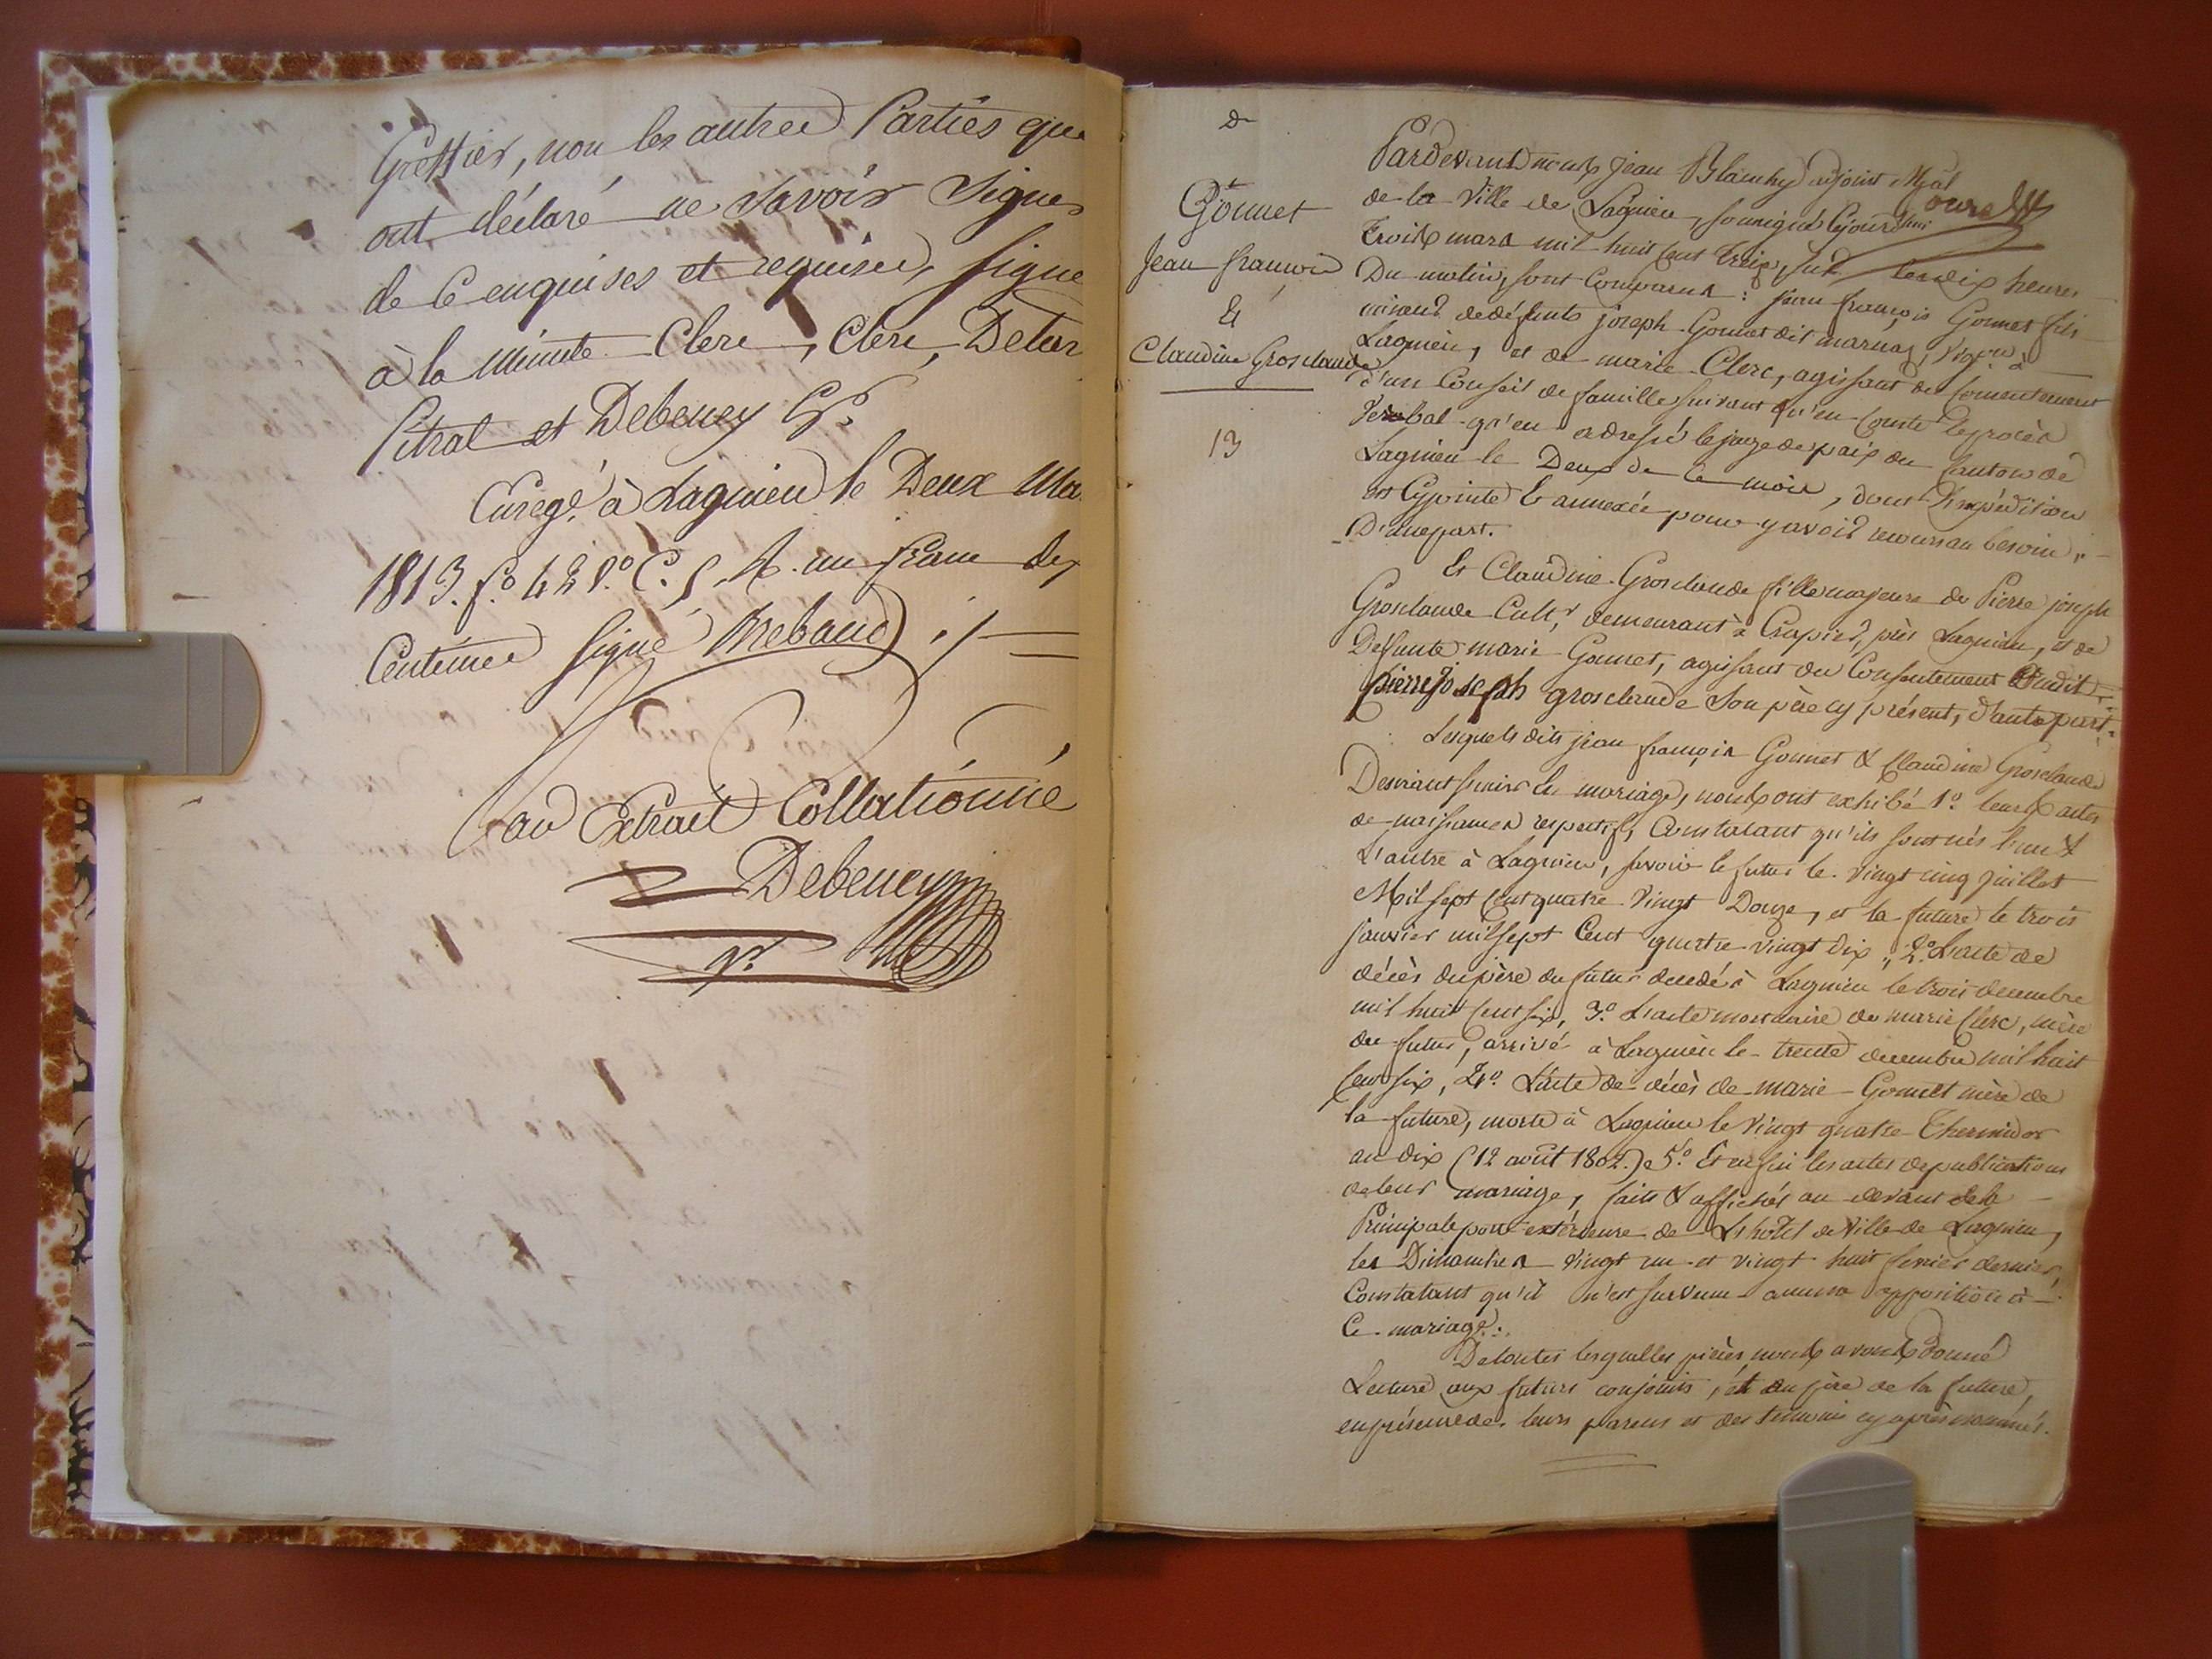 Greffier, non les autres Parties qui
ont déclaré ne savoir Signer
de ce enquises et requises, signé
à la minute Clerc, Clerc, Detur
Pitrat et Debeney Gr.
Enregé. à Lagnieu le Deux Ma
1813. f.o 42 v.o C. 5 R. un franc dix
Centimes signé Brebaud ./.
Pour Extrait Collationné
Debeney
gr.
Gonnet
Jean françois
&
Claudine Grosclaude
13
Pardevant nous Jean Blanchy adjoint Mpal
de la Ville de Lagnieu, soussigné Cejourdhui
trois mars mil huit cent treize, sur les dix heures
Du matin, sont Comparus : jean françois Gonnet fils
mineur de défunts joseph Gonnet dit marnas, vigon, à
Lagnieu, et de marie Clerc, agissant du Consentement
d'un Conseil de famille suivant qu'en Conste le procès
Verbal qu'en a dressé le juge de paix du Canton de
Lagnieu le Deux de ce mois, dont l'expédition
est Cyjointe & annexée pour y avoir recours au besoin,
D'unepart.
Et Claudine Grosclaude fille majeure de Pierre joseph
Grosclaude Cultr, demeurant à Crapier, près Lagnieu, et de
Défunte marie Gonnet, agissant du Consentement dudit
pierre Joseph grosclaude son père cy présent, d'autre part.
Lesquels dits jean françois Gonnet & Claudine Grosclaude
Desirant s'unir en mariage, nous ont exhibé 1.o leurs actes
de naissances respectifs, Constatant qu'ils sont nés l'un &
L'autre à Lagnieu, savoir le futur le vingt cinq juillet
Mil sept Cent quatre Vingt Douze, et la future le trois
janvier mil sept Cent quatre vingt dix ,, 2.o L'acte de
décès du père du futur décédé à Lagnieu le trois decembre
mil huit Cent six, 3.o L'acte mortuaire de marie Clerc, mère
du futur, arrivé à Lagnieu le trente decembre mil huit
Cent six, 4.o L'acte de décès de marie Gonnet mère de
la future, morte à Lagnieu le Vingt quatre Thermidor
an dix (12 août 1802.) 5.o Et enfin les actes de publications
de leur mariage, faits & affichés au devant de la
Principale porte extérieure de L'hôtel de Ville de Lagnieu,
les Dimanches Vingt un et vingt huit fevrier dernier,
Constatant qu'il n'est survenu aucune opposition à
Ce mariage.
De toutes lesquelles pièces nous avons donné
Lecture aux futurs conjoints, et au père de la future,
en présence de leurs parens et des temoins cy après nommés.